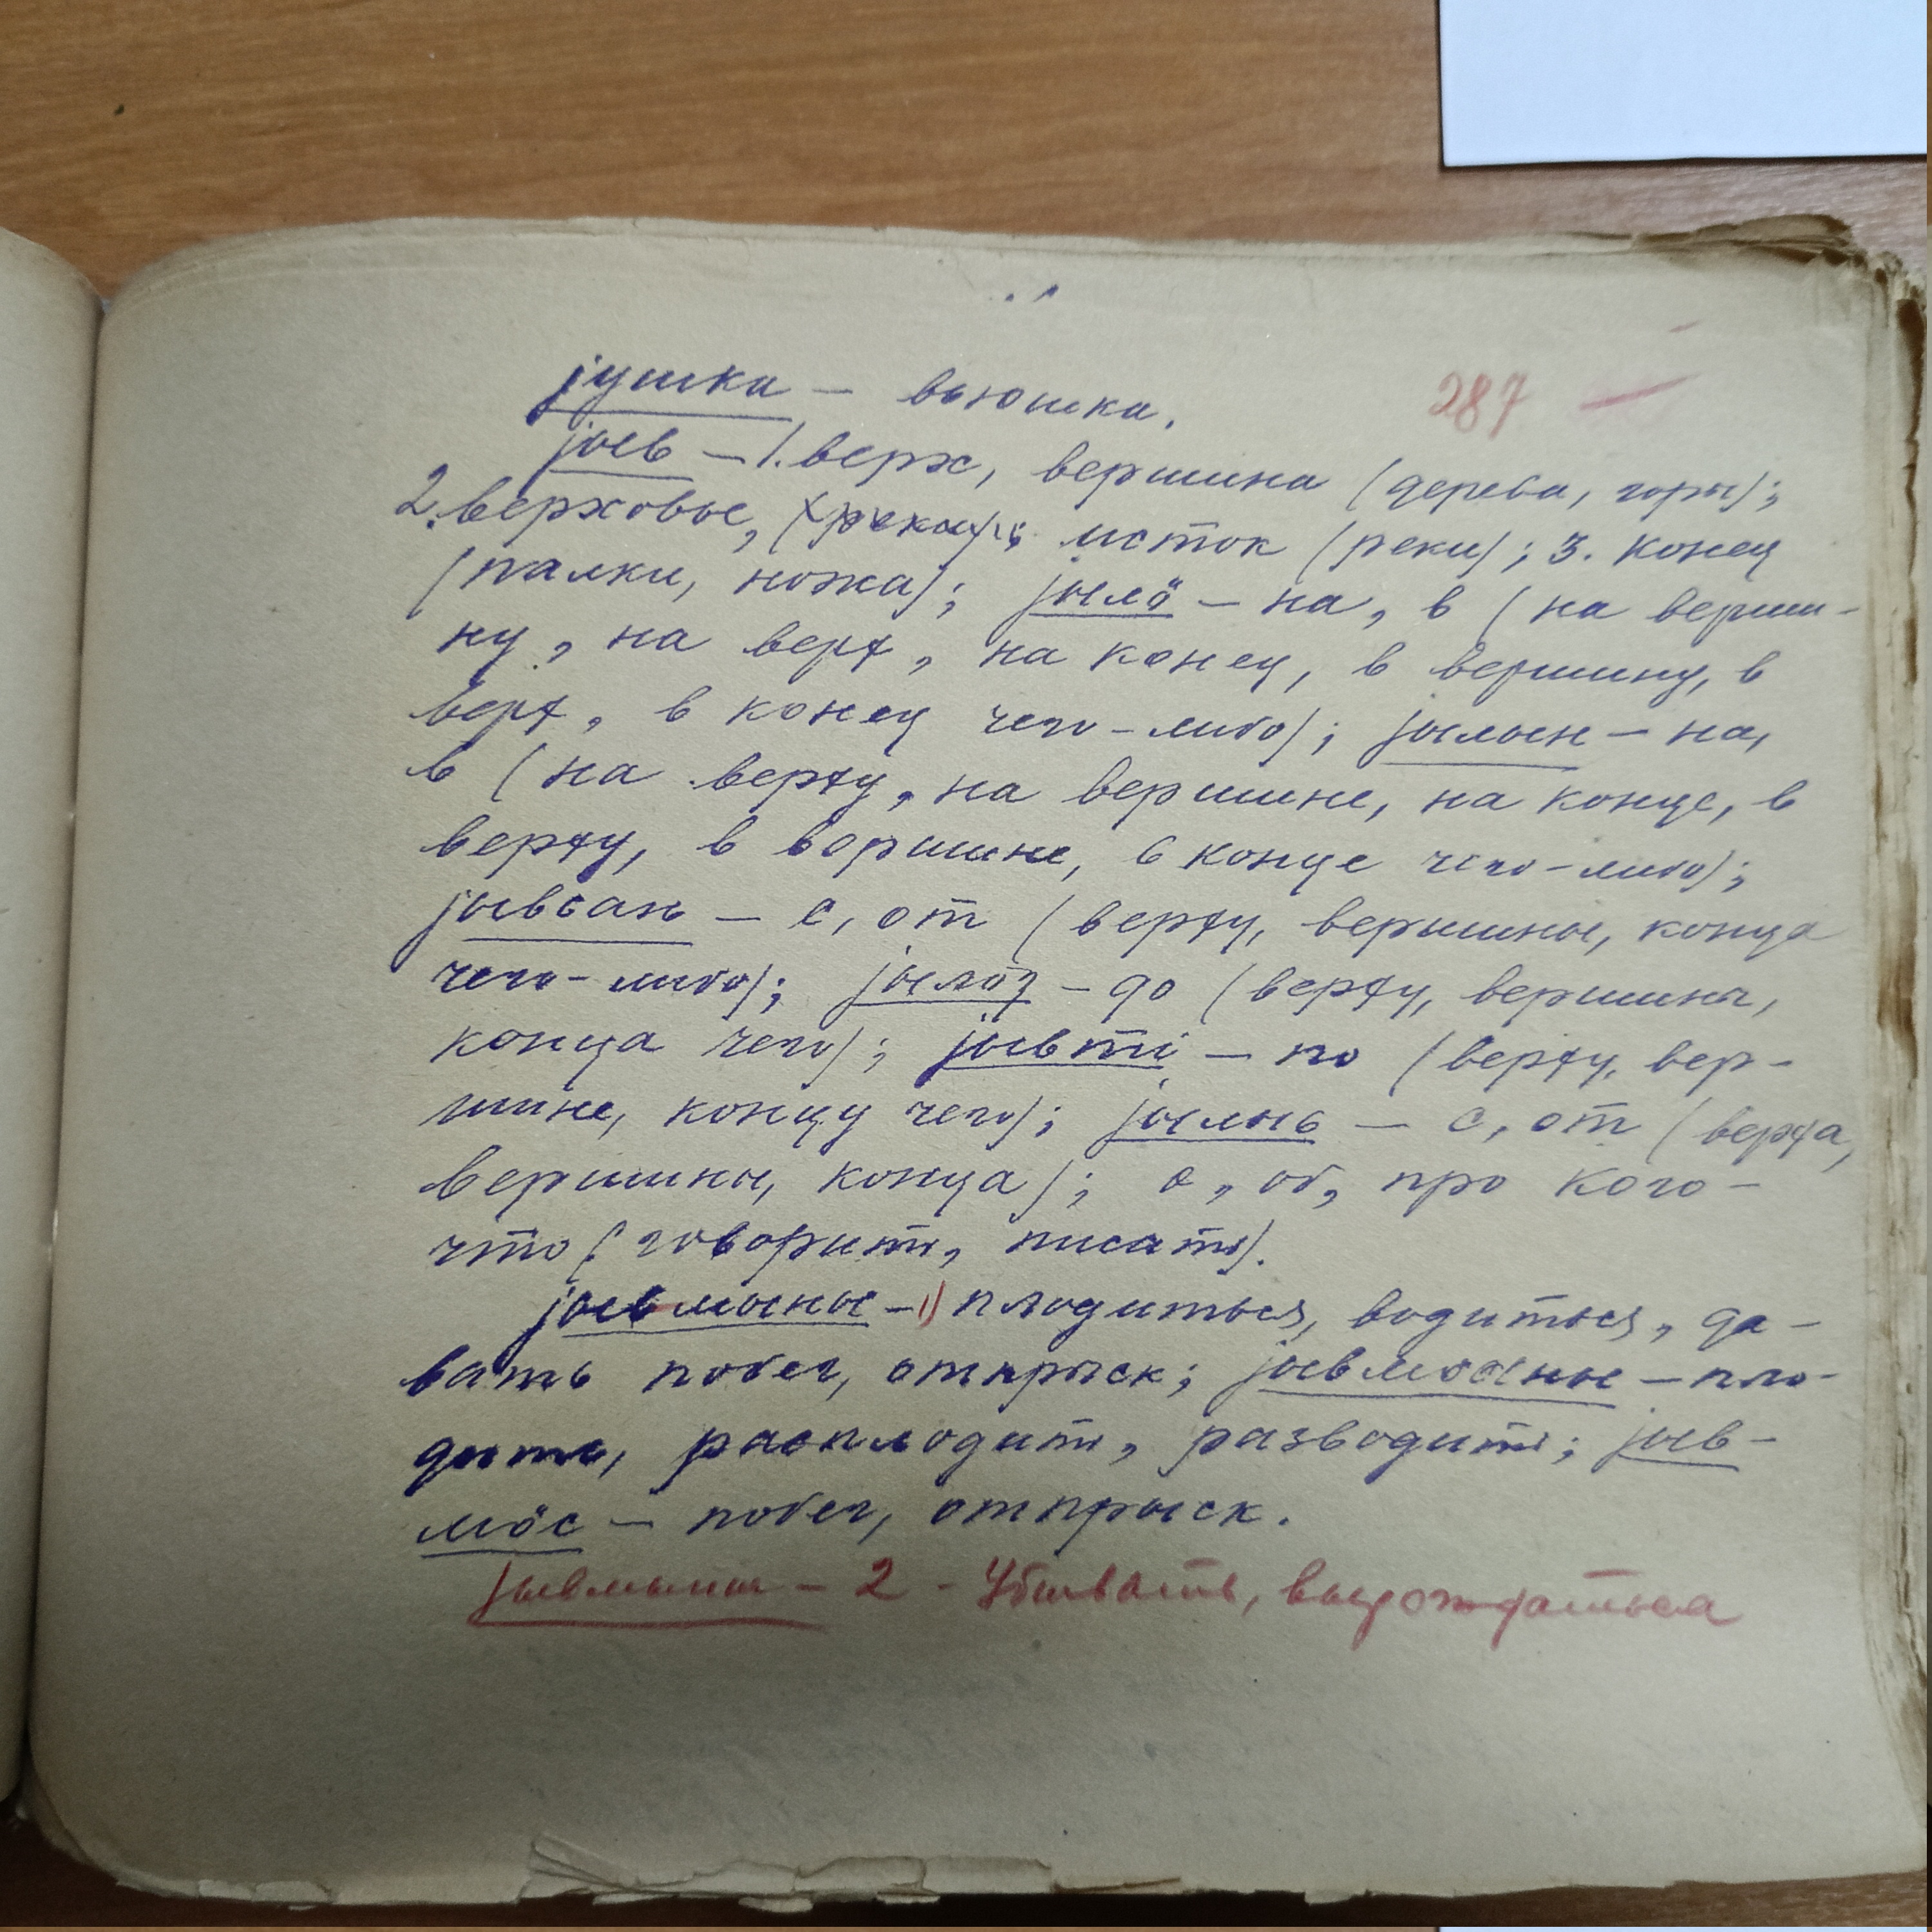 287 —
јушка — вьюшка.
јыв — 1. верх, вершина (дерева, горы);
2. верховье, (реки); исток (реки); 3. конец
(палки, ножа); јылӧ — на, в (на верши-
ну, на верх, на конец, в вершину, в
верх, в конец чего-либо); јылын — на,
в (на верху, на вершине, на конце, в
верху, в вершине, в конце чего-либо);
јывсань — с, от (верху, вершины, конца
чего-либо); јылӧӡ — до (верху, вершины,
конца чего); јывті — по (верху, вер-
шине, концу чего); јылысь — с, от (верха,
вершины, конца); о, об, про кого-
что (говорить, писать).
јывмыны — 1) плодиться, водиться, да-
вать побег, отпрыск; јывмӧдны — пло-
дить, расплодить, разводить; јыв-
мӧс — побег, отпрыск.
јывмыны — 2 - Убывать, вырождаться